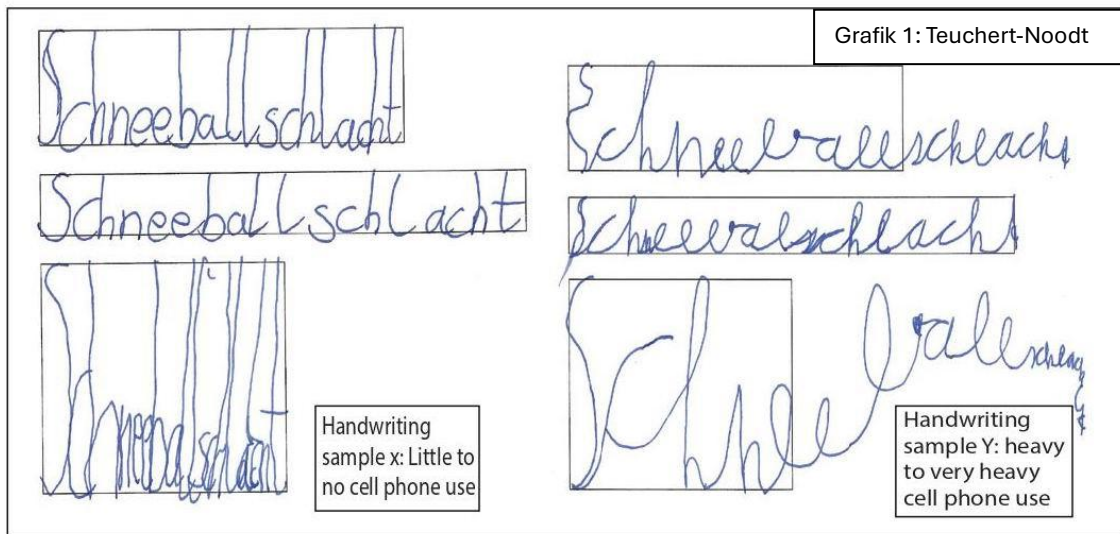 Grafik 1: Teuchert-Noodt
Schneeballschlacht
Schneeballschlacht
Schneeballschlacht
Handwriting
sample x: Little to
no cell phone use
Schneeballschlacht
Handwriting
sample Y: heavy
to very heavy
cell phone use